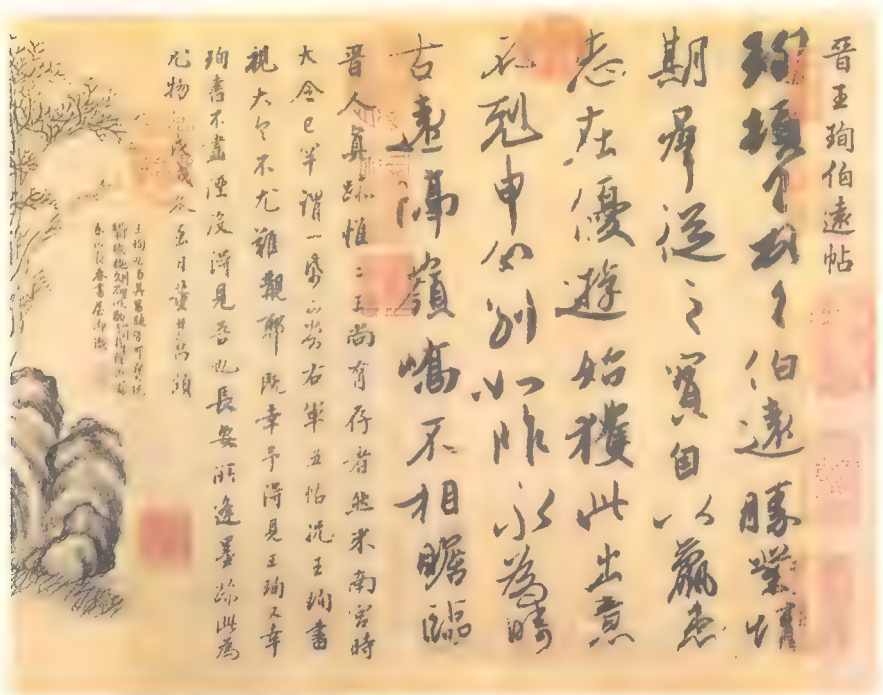 晉王珣伯遠帖
珣頓首頓首伯遠勝業情
期羣從之寶自以羸患
志在優遊始獲此出意
不剋申分別如昨永為疇
古遠隔嶺嶠不相瞻臨
晉人真跡惟二王尚有存者然米南宮時
大令已罕謂一紙可當右軍五帖況王珣書
視大令不尤難覯耶既幸予得見王珣又幸
珣書不盡湮沒得見吾也長安所逢墨跡此為
尤物戊戌冬至日董其昌題